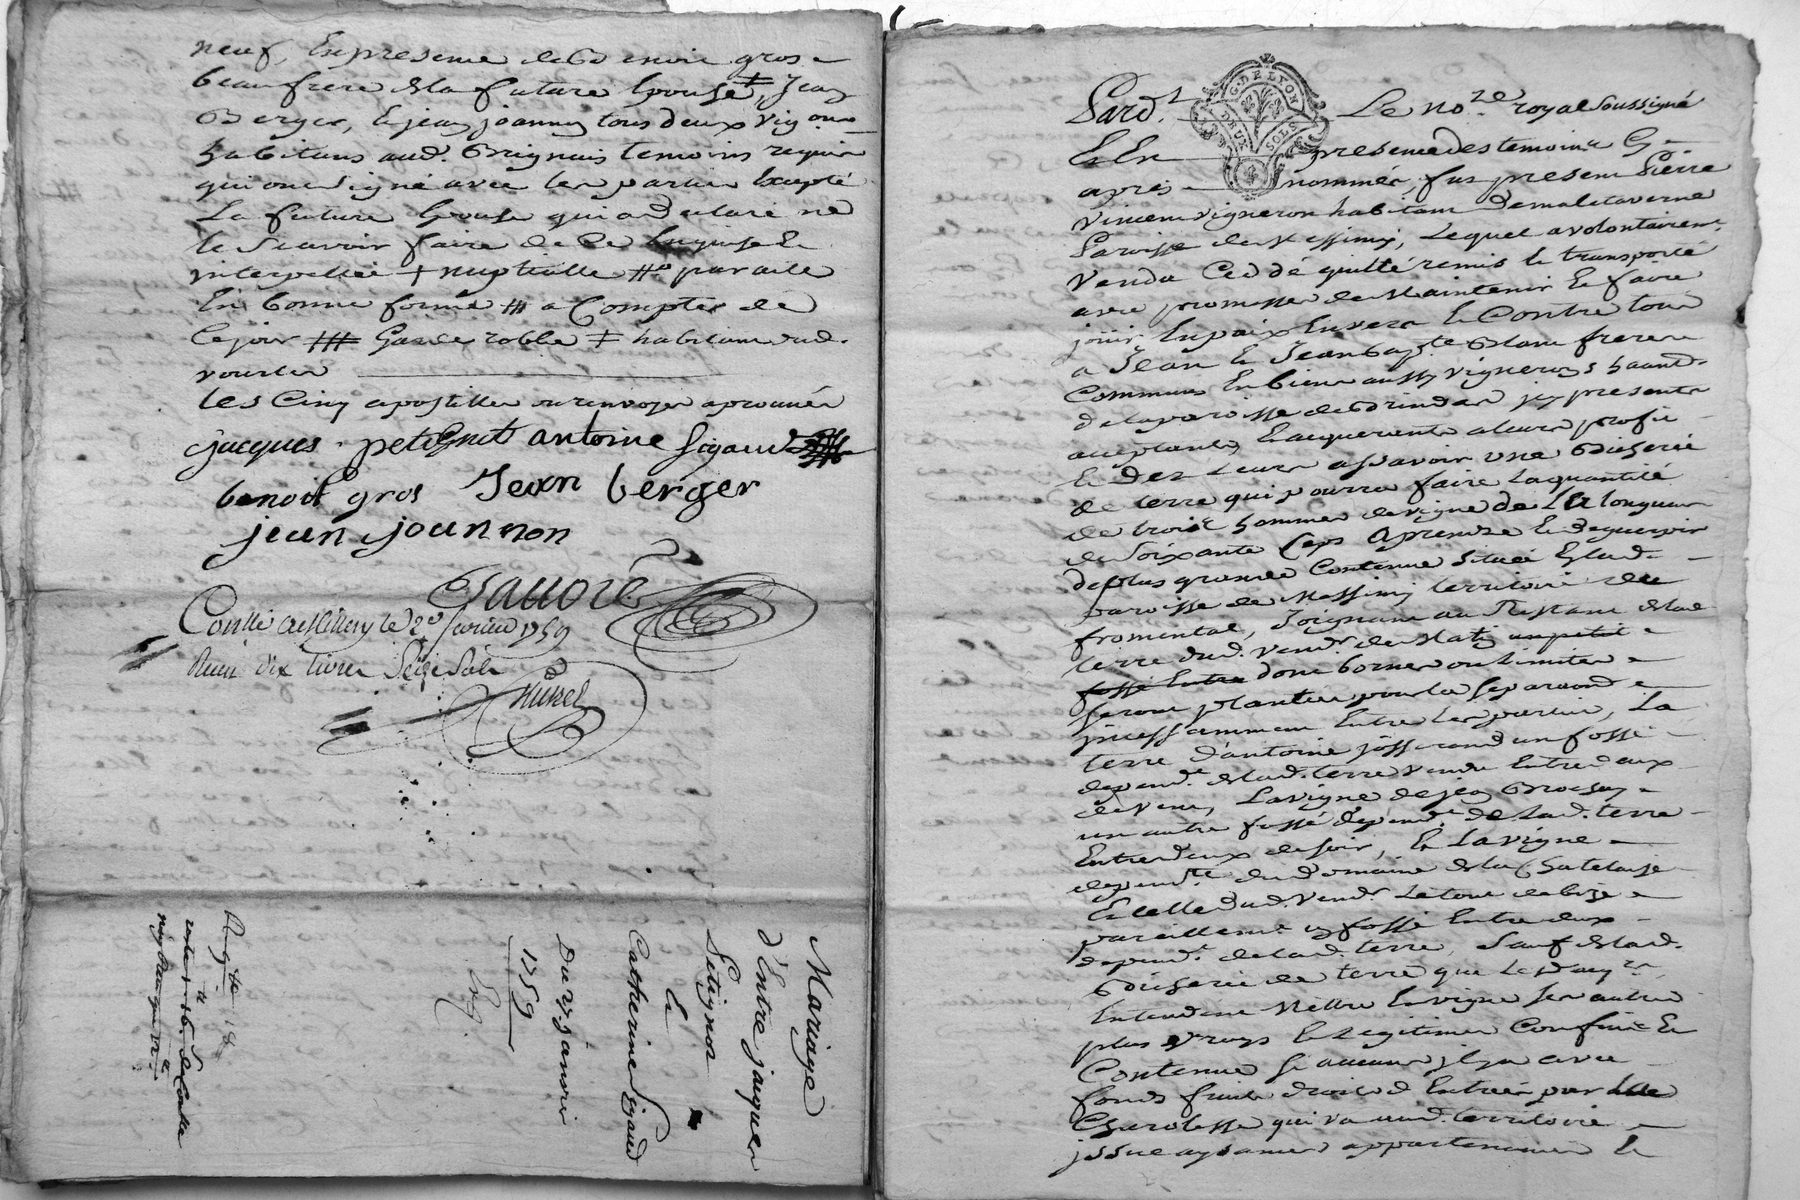 neuf, En presence de Benoit gros
beaufrere de la future Epouse ‡, Jean
Berger, & jean joannon tous deux vignerons
habitans aud. Brignais temoins requis
qui ont signé avec les parties Excepté
La future Epouse qui a declaré ne
le scavoir faire de ce Enquise &
interpellée + nuptialle # parail
En bonne forme # a Compter de
Ce jour # Garderobbe ‡ habitant aud.
vourles
les Cinq apostilles ou renvoyes aprouvés
jacques petignot antoine sigaud
benoit gros Jean berger
jean joannon
Controllé a St Mony le 2e fevrier 1759
Receu dix livres Seize Sols
Mariage
d'Entre jacques
Petignot
&
Catherine Sigaud
Du 27 janvier
1759
Exp.
Pard.t Le no.re royal soussigné
G. DE LYON
DEUX SOLS
& En presence des temoins
apres nommés, fut present Pierre
Vincent vigneron habitant de maletaverne
Paroisse de Messimy, Lequel a volontairem.t
Vendu Ceddé quitté remis & transporté
avec promesse de Maintenir & faire
jouir En paix Envers & Contre tous
a Jean & Jean bap.te Blanc freres
Communs En biens aussy vignerons habitans
de la paroisse de Brindas icy presents
acceptants, & acquerants a leurs profit
& des Leurs a scavoir une
de terre qui pourra faire la quantité
de trois hommes de vigne de La longueur
de soixante Ceps a prendre &
de plus grande Contenue Située En lad.
paroisse de Messimy territoire de
fromental, Joignant au Restant de lad.
terre dud. vend.r de Matin un petit
fossé Entre donc bornes ou limites
seront plantées pour la separation
incessamment Entre les parties, La
terre d'antoine josserand un fossé
depend.t de lad. terre vendue Entre deux
de vent, La vigne de jean
un autre fossé depend.t de lad. terre
Entre deux de soir, & La vigne
depend.te du domaine de la Chateloise
& celle dud. Vend.r Le tout de bize
pareillement un fossé Entre deux
depend.t de lad. terre, Sauf de lad.
de terre que Les acq.rs
Entendent Mettre En vigne ses autres
plus vrays & Legitimes Confins &
Contenue si aucuns il y a avec
fonds fruits droits d'Entrées par
Charolesse qui va aud. territoire
issue aysances appartenances &